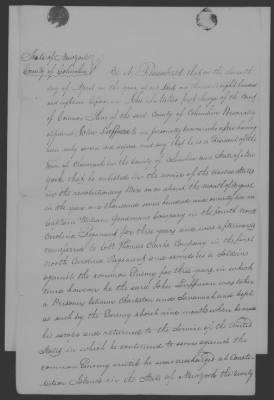 State of New York
County of Columbia
Be it Remembered that on the
day of April in the year of our Lord one thousand eight hundred
and eighteen before me first Judge of the Court
of Common Pleas of the said County of Columbia Personally
appeared John to me personally known who after having
been duly sworn did depose and say that he is of the
town of in the County of Columbia and State of New
York that he enlisted in the service of the United States
in the revolutionary War on or about the month of August
in the year one thousand seven hundred and seventy in
Captain William Company in the fourth North
Carolina Regiment for three years and was afterwards
transferred to Capt Thomas Clarks Company in the first
North Carolina Regiment and served as a Soldier
against the common Enemy for three years in which
time however he the said John was taken
a Prisoner between Charleston and Savannah and kept
as such by the Enemy about nine months when he made
his escape and returned to the Service of the United
States in which he continued to serve against the
common Enemy until he was discharged at
Islands in the State of New York the twenty